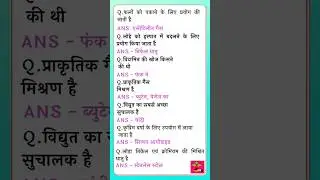 Q.फलों को पकाने के लिए प्रयोग की
जाती है
ANS- एसीटिलीन गैस
Q.लोहे को इस्पात में बदलने के लिए
प्रयोग किया जाता है
ANS - निकेल धातु
Q.विटामिन की खोज किसने
की थी
ANS - फंक ने
Q.प्राकृतिक गैस
मिश्रण है
ANS - ब्यूटेन, प्रोपेन का
Q.विद्युत का सबसे अच्छा
सुचालक है
ANS - चांदी
Q.कृत्रिम वर्षा के लिए उपयोग में लाया
जाता है
ANS - सिल्वर आयोडाइड
Q.लोहा निकेल एवं क्रोमियम की मिश्रित
धातु है
ANS - स्टेनलेस स्टील